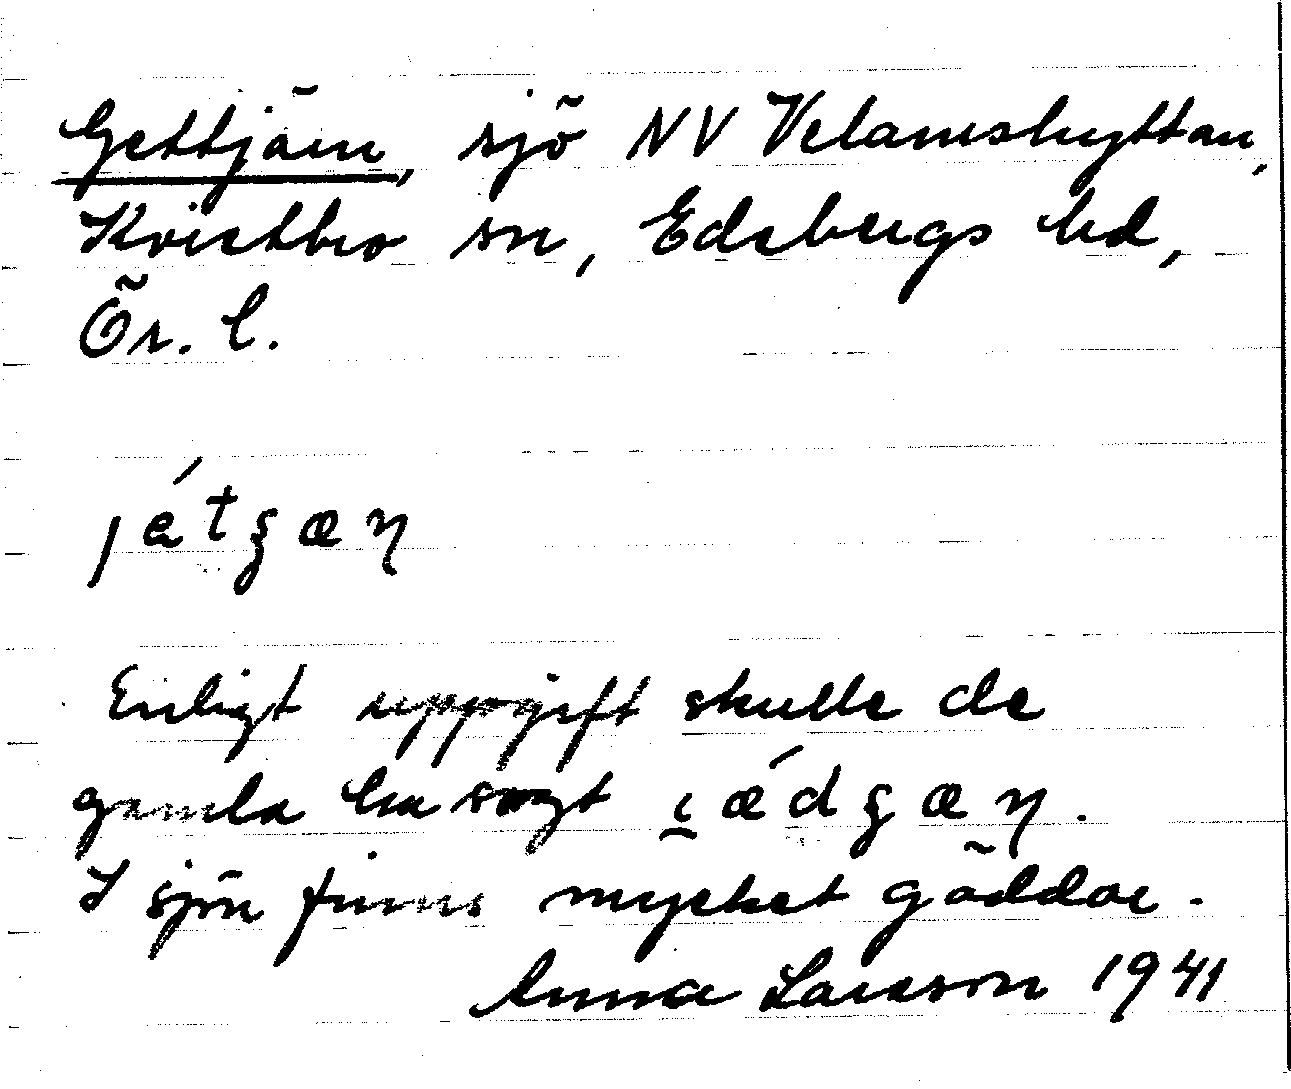 Gettjärn, sjö NV Velamshyttan,
Kvistbro sn, Edsbergs hd,
Ör. l.
Enligt uppgift skulle de
gamla ha sagt
I sjön finns mycket gäddor.
Anna Larsson 1941